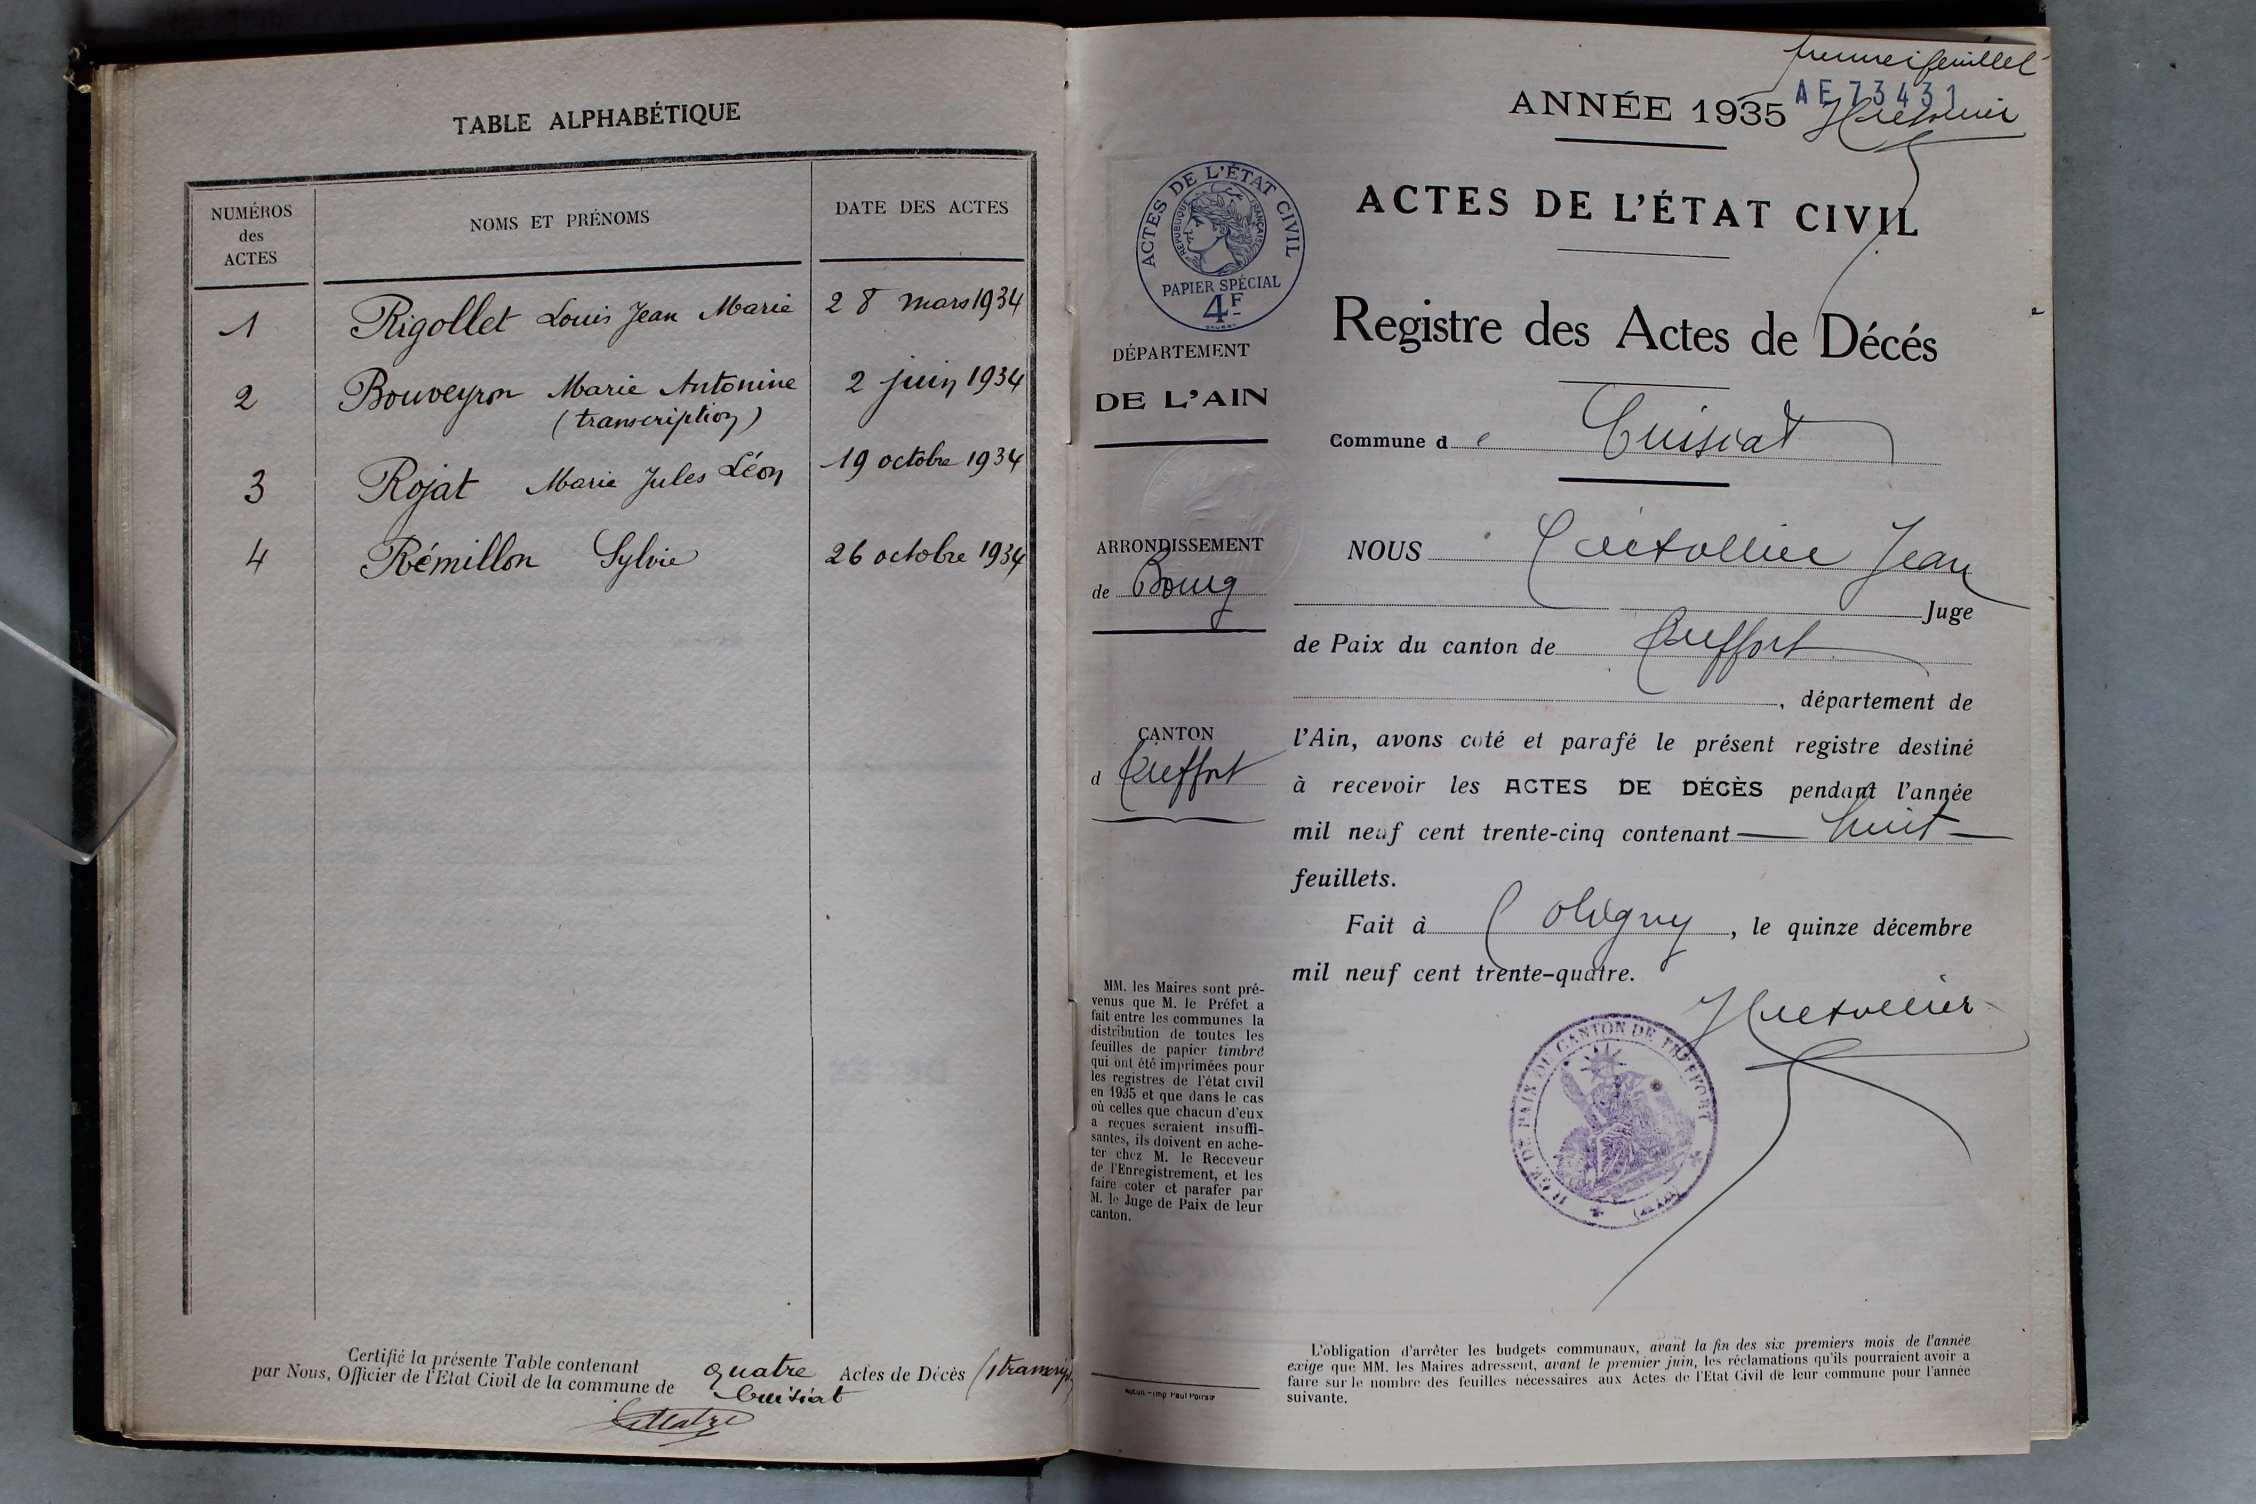 TABLE ALPHABÉTIQUE
NUMÉROS
des
ACTES
NOMS ET PRÉNOMS
DATE DES ACTES
1 Rigollet Louis Jean Marie 28 mars 1934
2 Bouveyron Marie Antonine 2 juin 1934
(transcription)
3 Rojat Marie Jules Léon 19 octobre 1934
4 Rémillon Sylvie 26 octobre 1934
Certifié la présente Table contenant quatre Actes de Décès
par Nous, Officier de l'Etat Civil de la commune de Cuisiat
feuillet
AE 73431
ANNÉE 1935
ACTES DE L'ÉTAT CIVIL
Registre des Actes de Décés
ACTES DE L'ÉTAT CIVIL
RÉPUBLIQUE FRANÇAISE
PAPIER SPÉCIAL
4F
DÉPARTEMENT
DE L'AIN
ARRONDISSEMENT
de Bourg
CANTON
d Treffort
MM. les Maires sont pré-
venus que M. le Préfet a
fait entre les communes la
distribution de toutes les
feuilles de papier timbré
qui ont été imprimées pour
les registres de l'état civil
en 1935 et que dans le cas
où celles que chacun d'eux
a reçues seraient insuffi-
santes, ils doivent en ache-
ter chez M. le Receveur
de l'Enregistrement, et les
faire coter et parafer par
M. le Juge de Paix de leur
canton.
Commune de Cuisiat
NOUS Jean
Juge
de Paix du canton de Treffort
, département de
l'Ain, avons coté et parafé le présent registre destiné
à recevoir les ACTES DE DÉCÈS pendant l'année
mil neuf cent trente-cinq contenant huit
feuillets.
Fait à Coligny, le quinze décembre
mil neuf cent trente-quatre.
JUGE DE PAIX DU CANTON DE TREFFORT
(AIN)
L'obligation d'arrêter les budgets communaux, avant la fin des six premiers mois de l'année
exige que MM. les Maires adressent, avant le premier juin, les réclamations qu'ils pourraient avoir à
faire sur le nombre des feuilles nécessaires aux Actes de l'Etat Civil de leur commune pour l'année
suivante.